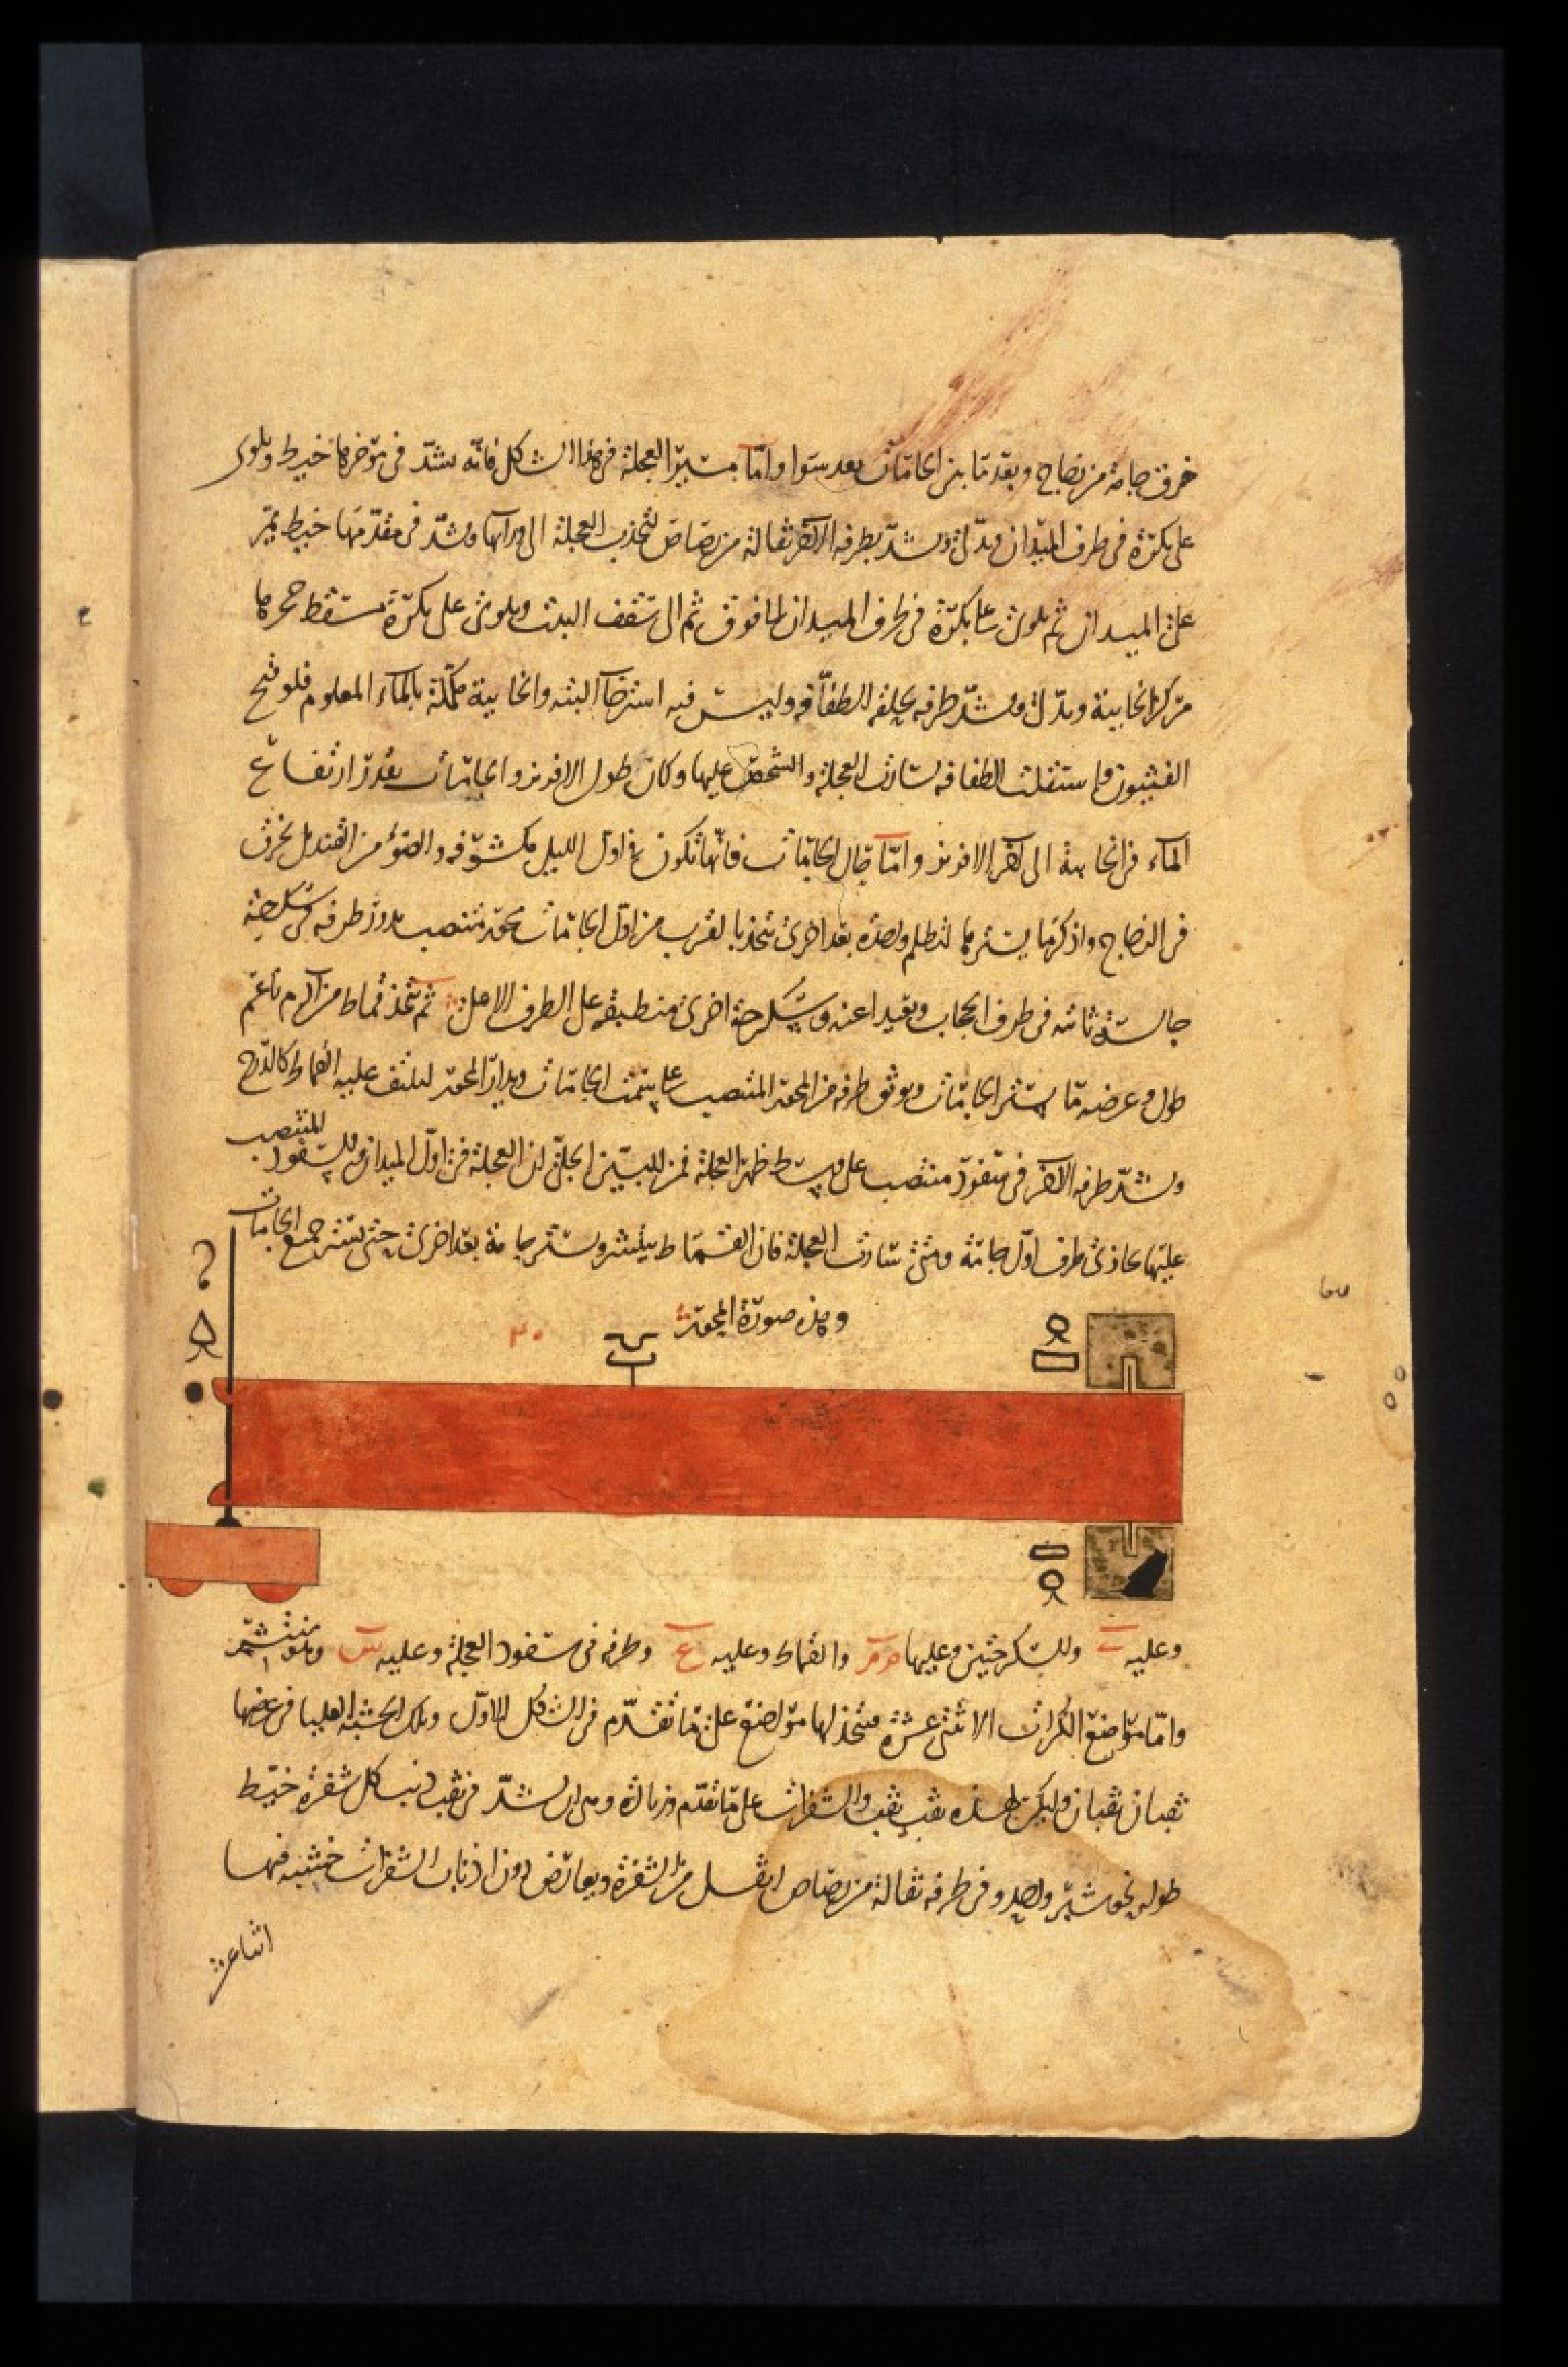 خرق جامة من زجاج وبعد ما بين الجامات بعد سوا واما مسير العجلة في هذا الشكل فانه يشد في موخرها خيط ويلوى
على بكرة في طرف الميدان ويدلى ويشد بطرفه الاخر ثقالة من رصاص لتجذب العجلة الى ورائها ويشد في مقدمها خيط يمر
على الميدان ثم يلوى على بكرة في طرف الميدان الى فوق ثم الى سقف البيت ويلوى على بكرة مسقط حجرها
مركز الخابية ويدلى ويشد طرفه بحلقة الطفافة وليس فيه استرخآ البته والخابية مكملة بالماء المعلوم فلو فتح
الفيثون واستفلت الطفافه لسارت العجلة والشخص عليها وكان طول الافريز والجامات بقدر ارتفاع
الماء في الخابية الى اخر الافريز واما حال الجامات فانها تكون في اول الليل مكشوفه والضوء من القنديل يخرق
في الزجاج واذكر ما يسترها لتظلم واحدة بعد اخرى يتخذ بالقرب من اول الجامات محور منتصب يدور طرفه في سكرجة
جالسة ثابته في طرف الحجاب وبعيدا عنه وسكرجة اخرى منطبقه على الطرف الاعلى ثم يتخذ قماط من ادم ناعم
طول وعرضه ما يستر الجامات ويوثق طرفه في المحور المنتصب على سمت الجامات ويدار المحور ليلتف عليه القماط كالدرج
ويشد طرفه الاخر في سفود منتصب على وسط ظهر العجلة فمن البين الجلى ان العجلة في اول الميدان والسفود المنتصب
عليها يحاذى طرف اول جامة ومتى سارت العجلة فان القماط ينتشر ويستر جامة بعد اخرى حتى يستر جميع الجامات
وهذه صورة المحور
وعليه وللسكرجتين وعليها والقماط وعليه ع وطرفه في سفود العجلة وعليه س وهو منتشر
واما مواضع الكرات الاثنتى عشرة فيتخذ لها مواضع على ما تقدم في الشكل الاول وتلك الخشبه العليا في عرضها
ثقبان ثقبان وليكن لهذه ثقب ثقب والشفرات على ما تقدم وزيادة وهى ان يشد في ثقب ذنب كل شفرة خيط
طوله نحو شبر واحد وفي طرفه ثقالة من رصاص اثقل من الشفرة ويعارض دون اذناب الشفرات خشبه فيها
اثنا عشر